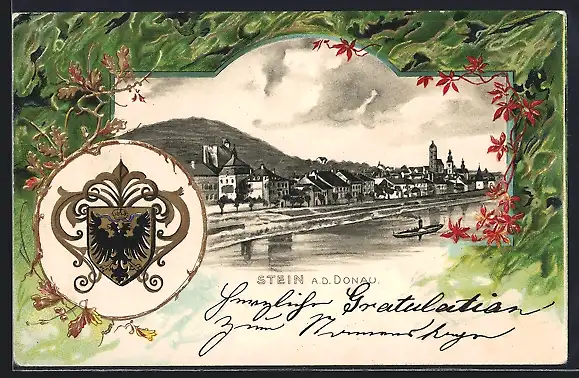 STEIN A.D. DONAU.
Herzliche Gratulation
zum Namenstage